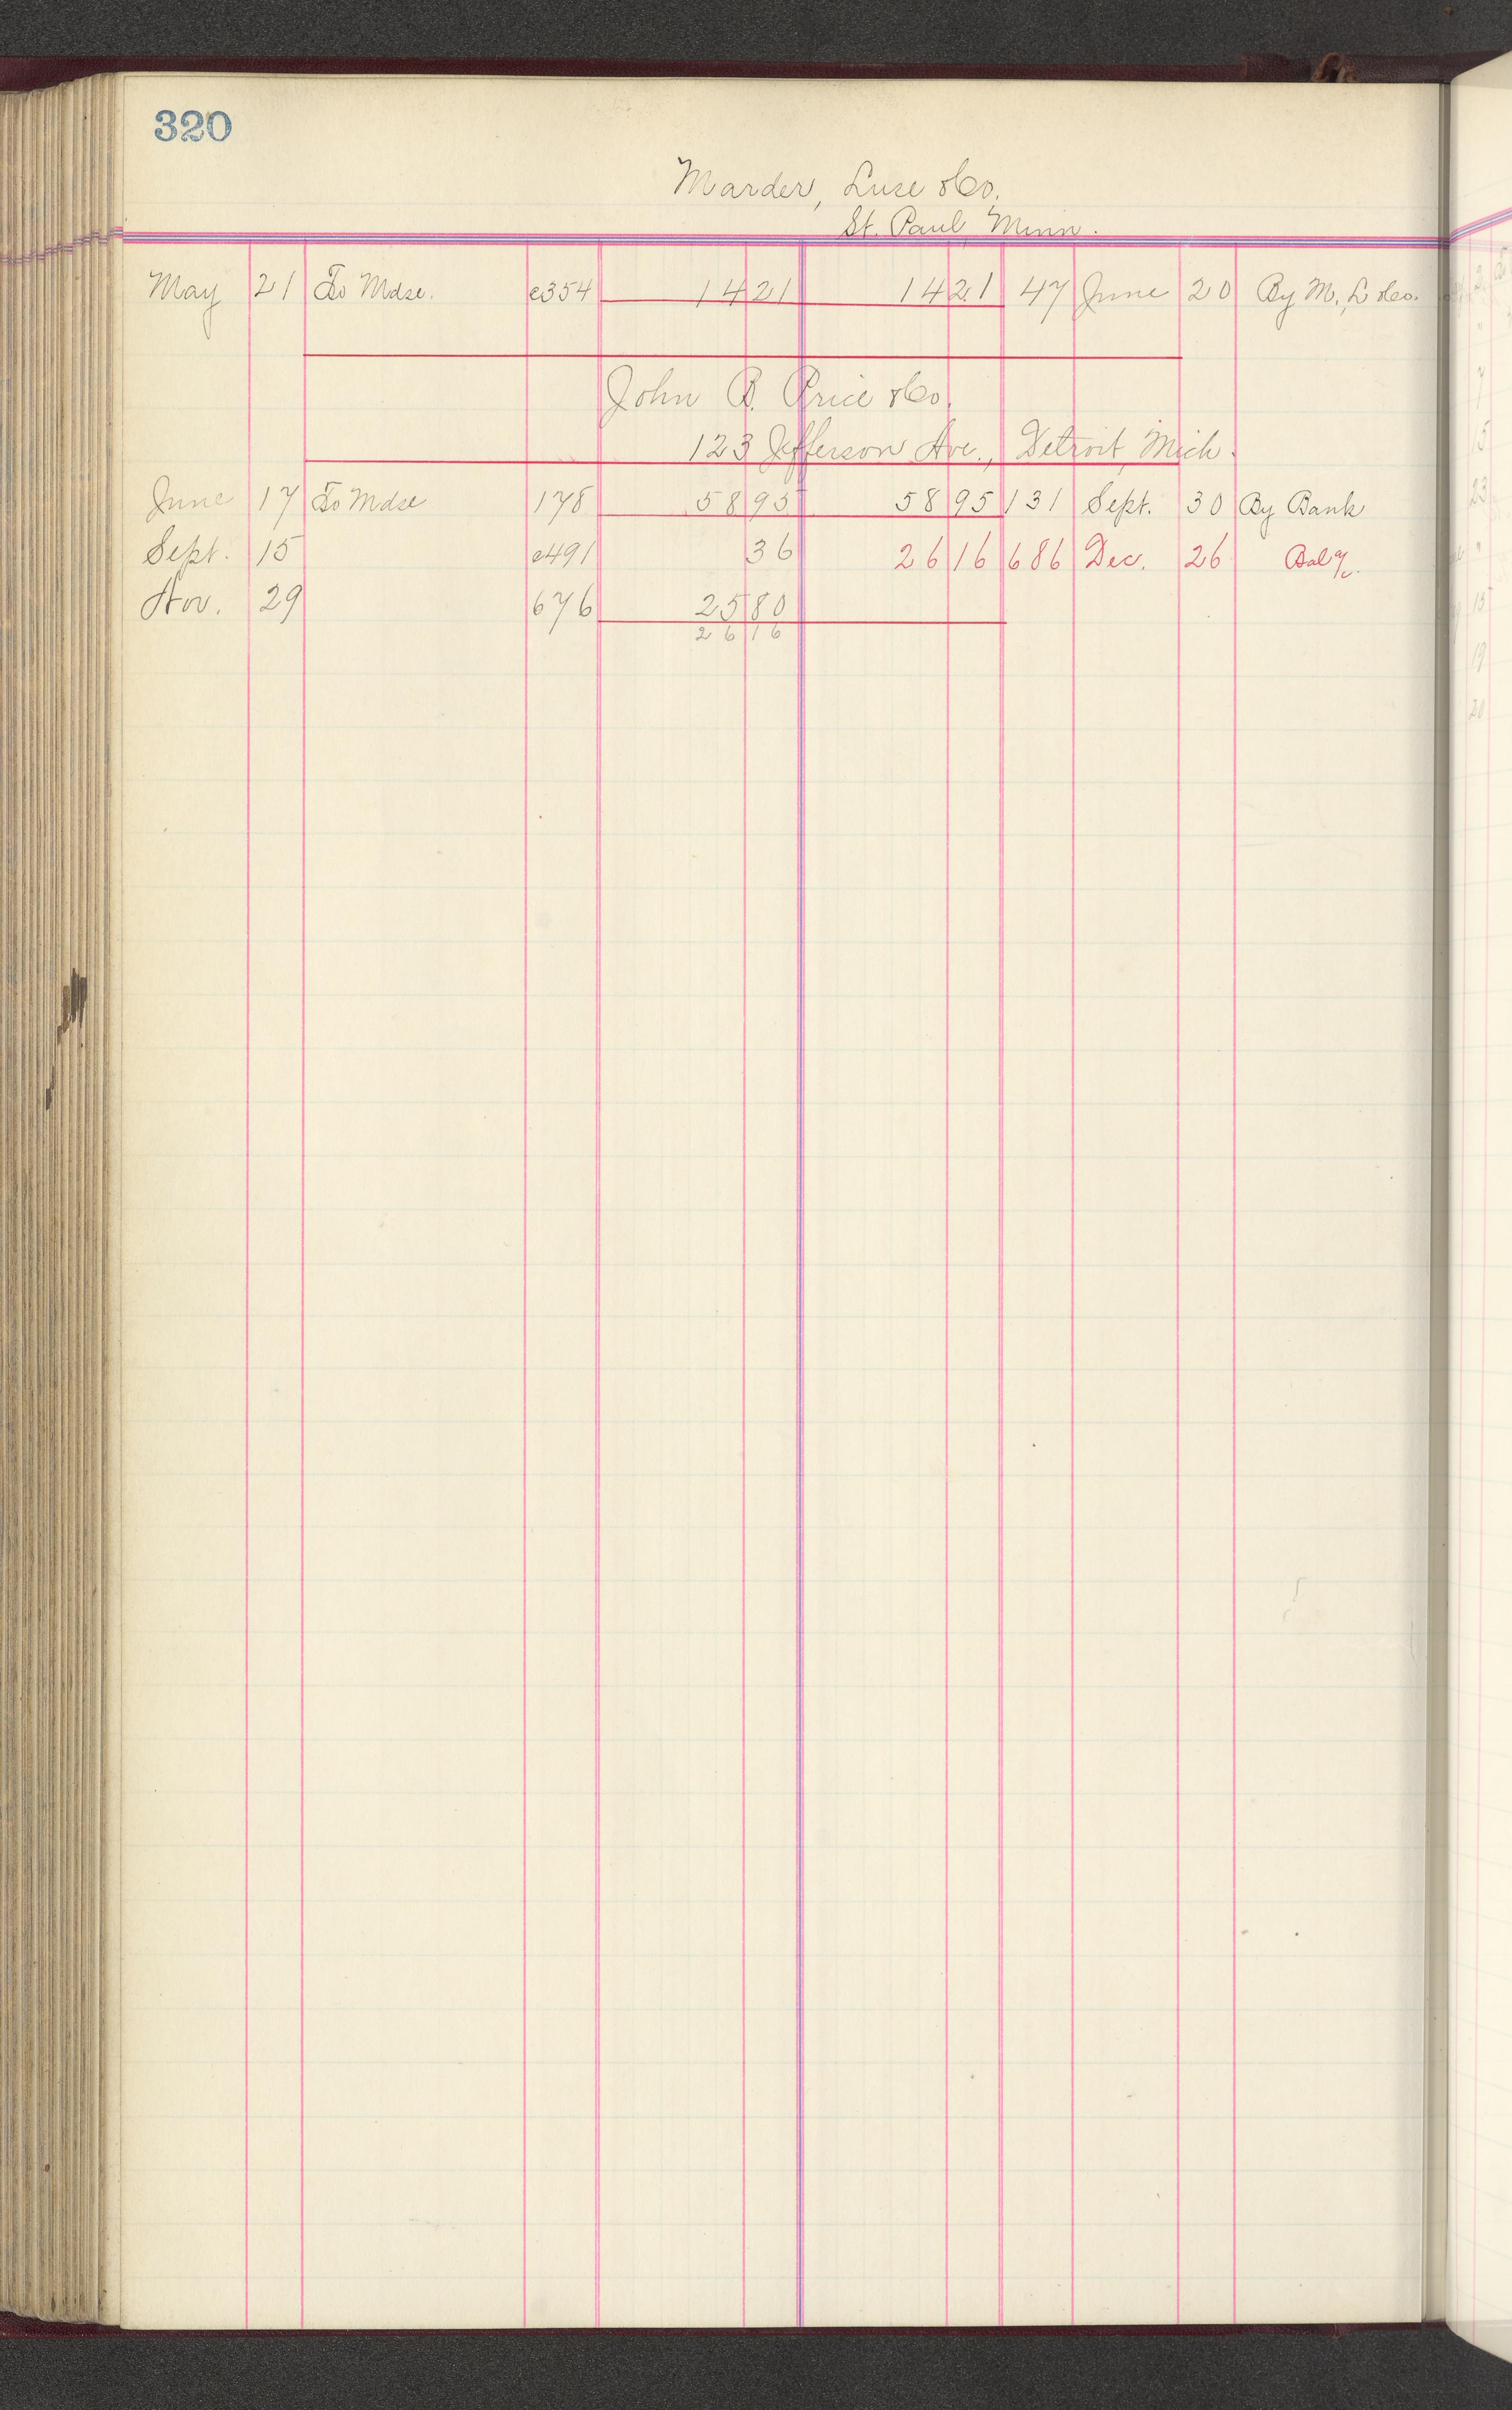 320
Marder, Luse & Co.
St. Paul, Minn.
May 21 To Mdse. c354 14 21 14 21 47 June 20 By M., L & Co.
John B. Price & Co.
123 Jefferson Ave., Detroit, Mich.
June 17 To Mdse 178 58 95 58 95 131 Sept. 30 By Bank
Sept. 15 c491 36 26 16 686 Dec. 26 Bal a/c.
Nov. 29 676 25 80
26 16